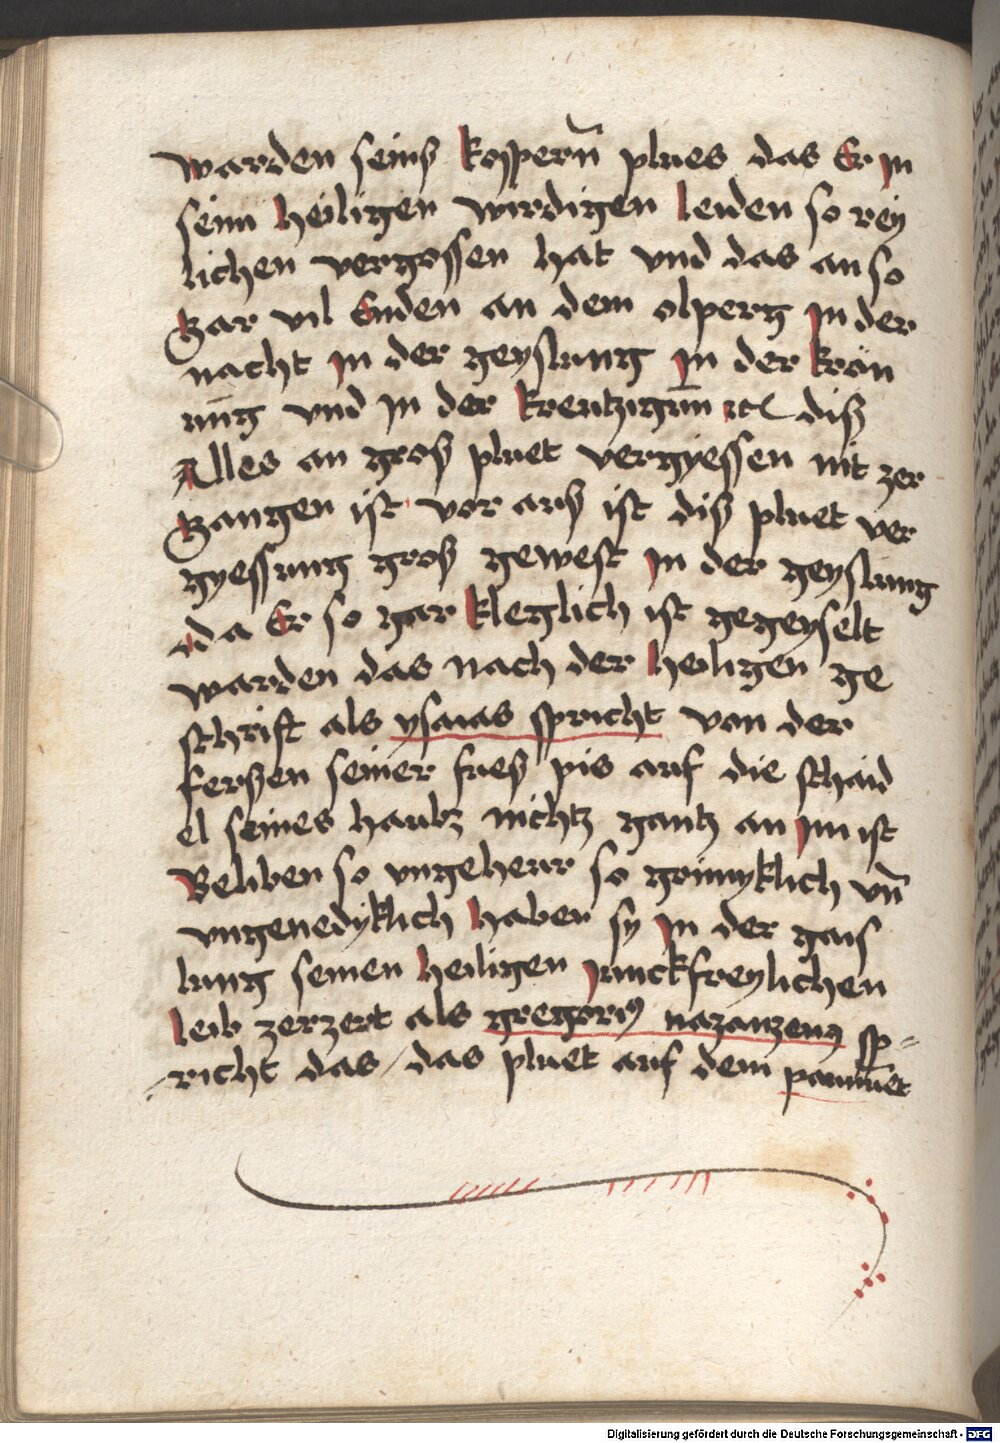 warden seins kospern̄ plues das Er jn
seim heiligen wirdigen leiden so rey
lichen vergossen hat vnd das an so
gar vil Enden an dem olperg jn der
nacht jn der geyslung jn der krön
ūng vnd jn der kreutzigūn ꝛc diß
Alles an groß pluet vergyessen nit zer
gangen ist vor aus ist diß pluet ver
gyessung groß gewest jn der geyslung
da Er so gar kleglich ist gegeyselt
warden das nach der heiligen ge
schrift als ysaias spricht von der
ferßen seiner fueß pis auf die schaid
el seines haubz nichtz gantz an jm ist
Beliben so vngeheur so grimyklich vn̄
vngenedyklich haben sy jn der gais
lung seinen heiligen junckfreylichen
leib zerzert als gregoriꝰ nazanzenꝰ sp-
richt das das pluet auf dem paumēt
Digitalisierung gefördert durch die Deutsche Forschungsgemeinschaft - DFG